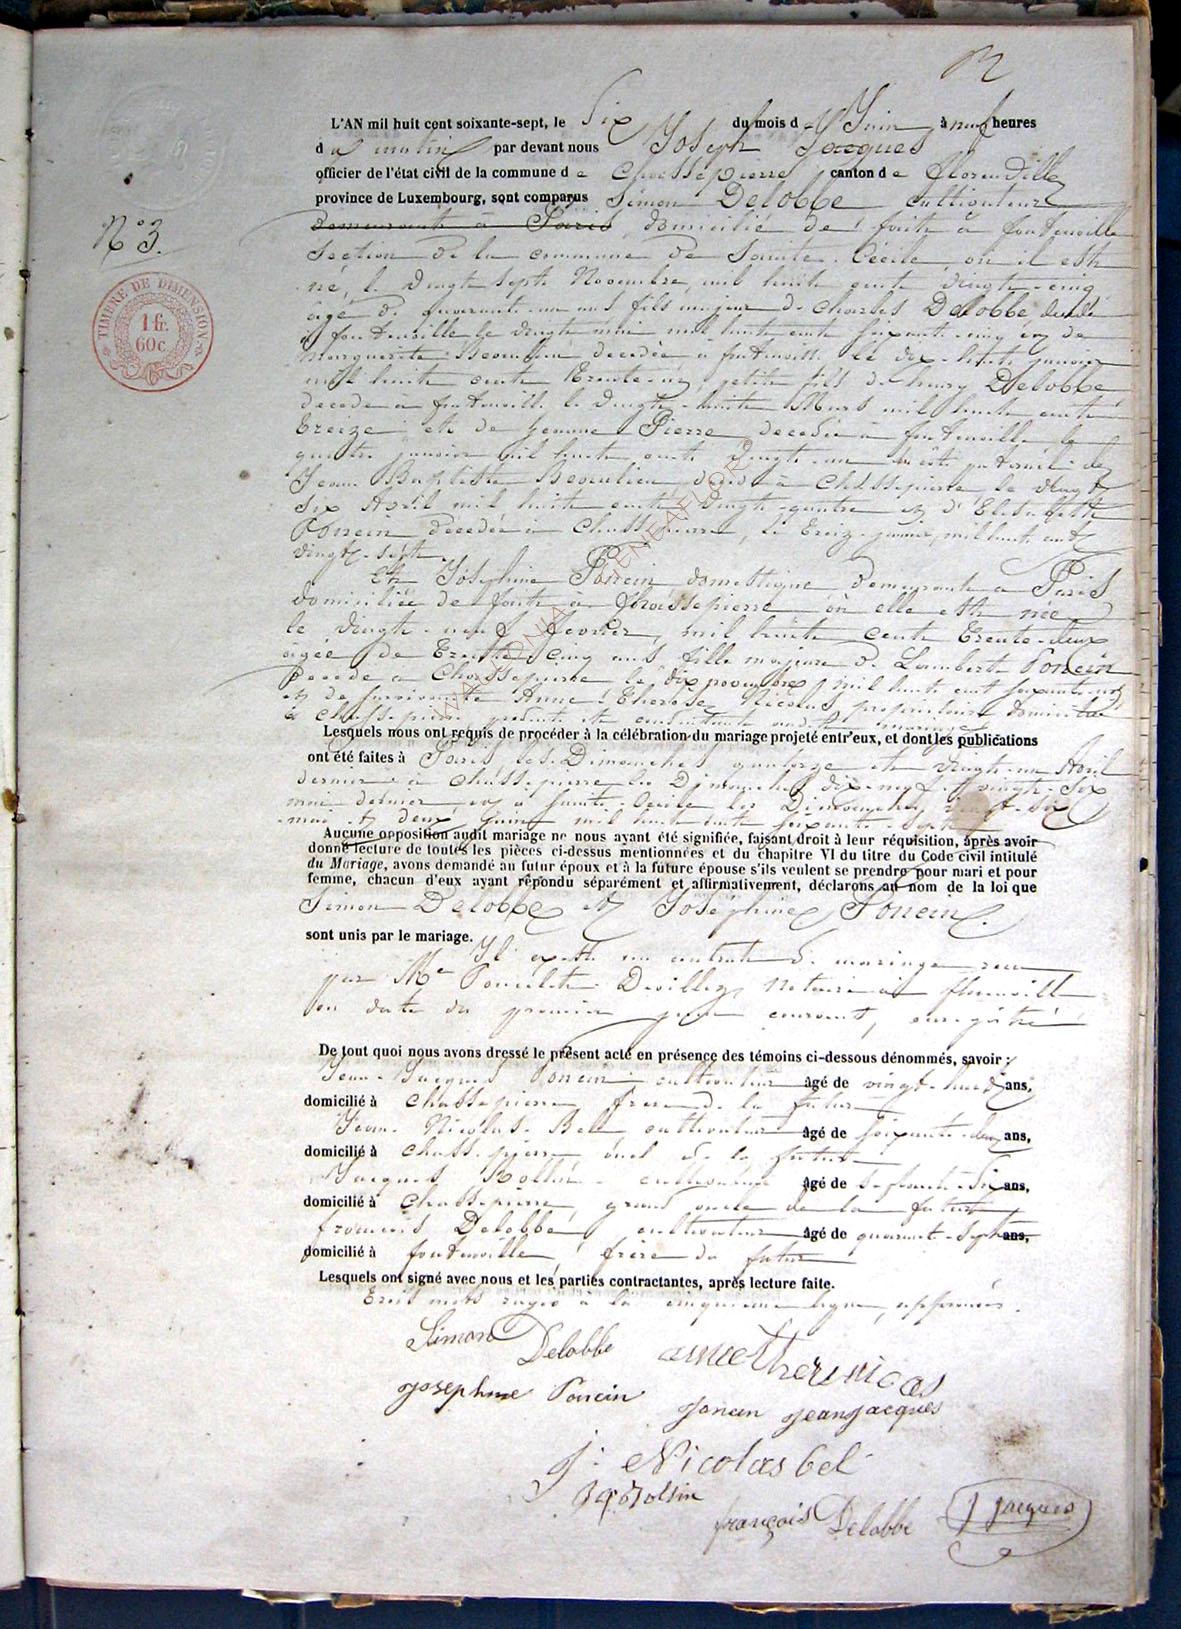 L'AN mil huit cent soixante-sept, le Six du mois d Juin à neuf heures
d u matin par devant nous Joseph Jacques
officier de l'état civil de la commune d e Chassepierre canton d e florenville
province de Luxembourg, sont comparus Simon Delobbe cultivateur
demeurant à Paris domicilié de fait à fontenoille
section de la commune de Sainte Cécile, où il est
né, le vingt sept Novembre, mil huit cent vingt-cinq
âgé de quarante un ans fils majeur de Charles Delobbe décédé
à fontenoille le vingt mai mil huit cent soixante cinq et de
Marguerite Beaulieu décédée à fontenoille le dix-huit janvier
mil huit cent trente petit fils de henry Delobbe
décédé à fontenoille le vingt huit Mars mil huit cent
treize et de jeanne Pierre décédée à fontenoille le
quatre janvier mil huit cent vingt-un du côté paternel de
Jean Baptiste Beaulieu décédé à Chassepierre le vingt
six Avril mil huit cent vingt-quatre et d'Elisabeth
Poncin décédée à Chassepierre, le treize janvier, mil huit cent
vingt-sept
Et Joséphine Poncin domestique demeurant à Paris
domiciliée de fait à Chassepierre où elle est née
le vingt-neuf février, mil huit cent trente-deux
âgée de trente cinq ans fille majeure de Lambert Poncin
décédé à Chassepierre le dix novembre mil huit cent soixante
et de survivante Anne Thérèse Nicolas propriétaire domiciliée
à Chassepierre, présente et consentante audit mariage
Lesquels nous ont requis de procéder à la célébration du mariage projeté entr'eux, et dont les publications
ont été faites à Paris les Dimanches quatorze et vingt-un Avril
dernier à Chassepierre les Dimanches dix-neuf et vingt-six
mai dernier et à Sainte-Cécile les Dimanches vingt-six
mai et deux juin mil huit cent soixante-sept
Aucune opposition audit mariage ne nous ayant été signifiée, faisant droit à leur réquisition, après avoir
donné lecture de toutes les pièces ci-dessus mentionnées et du chapitre VI du titre du Code civil intitulé
du Mariage, avons demandé au futur époux et à la future épouse s'ils veulent se prendre pour mari et pour
femme, chacun d'eux ayant répondu séparément et affirmativement, déclarons au nom de la loi que
Simon Delobbe et Joséphine Poncin
sont unis par le mariage.
Il existe un contrat de mariage reçu
par Me Poncelet Devillez Notaire à florenville
en date du premier juin courant, enregistré
De tout quoi nous avons dressé le présent acte en présence des témoins ci-dessous dénommés, savoir :
Jean-Jacques Poncin cultivateur âgé de vingt-huit ans,
domicilié à Chassepierre frère de la future
Jean-Nicolas Bel cultivateur âgé de soixante-deux ans,
domicilié à Chassepierre oncle de la future
Jacques cultivateur âgé de septante-six ans,
domicilié à Chassepierre, grand oncle de la future
françois Delobbe cultivateur âgé de quarante-sept ans,
domicilié à fontenoille frère du futur
Lesquels ont signé avec nous et les parties contractantes, après lecture faite.
Trois mots rayés à la cinquième ligne, approuvés.
N° 3.
TIMBRE DE DIMENSION
1 fr.
60c.
WALLONIA GENEAFLOR
Simon Delobbe
Josephine Poncin
poncin jeanjacques
j. Nicolas bel
françois Delobbe
J Jacques